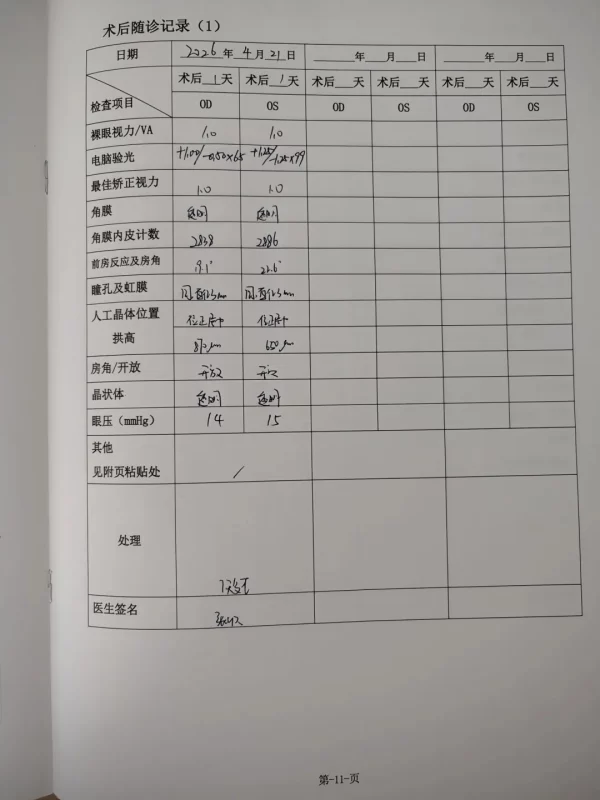 术后随诊记录（1）
日期 2026年4月21日 ___年___月___日 ___年___月___日
检查项目 术后_1_天 术后_1_天 术后___天 术后___天 术后___天 术后___天
OD OS OD OS OD OS
裸眼视力/VA 1.0 1.0
电脑验光 +1.00/-0.50×65 +1.25/-1.25×99
最佳矫正视力 1.0 1.0
角膜 透明 透明
角膜内皮计数 2838 2886
前房反应及房角 19.1° 22.6°
瞳孔及虹膜 圆,直径3mm 圆,直径3mm
人工晶体位置 位正居中 位正居中
拱高 870μm 650μm
房角/开放 开放 开放
晶状体 透明 透明
眼压（mmHg） 14 15
其他
见附页粘贴处 /
处理
医生签名
第-11-页